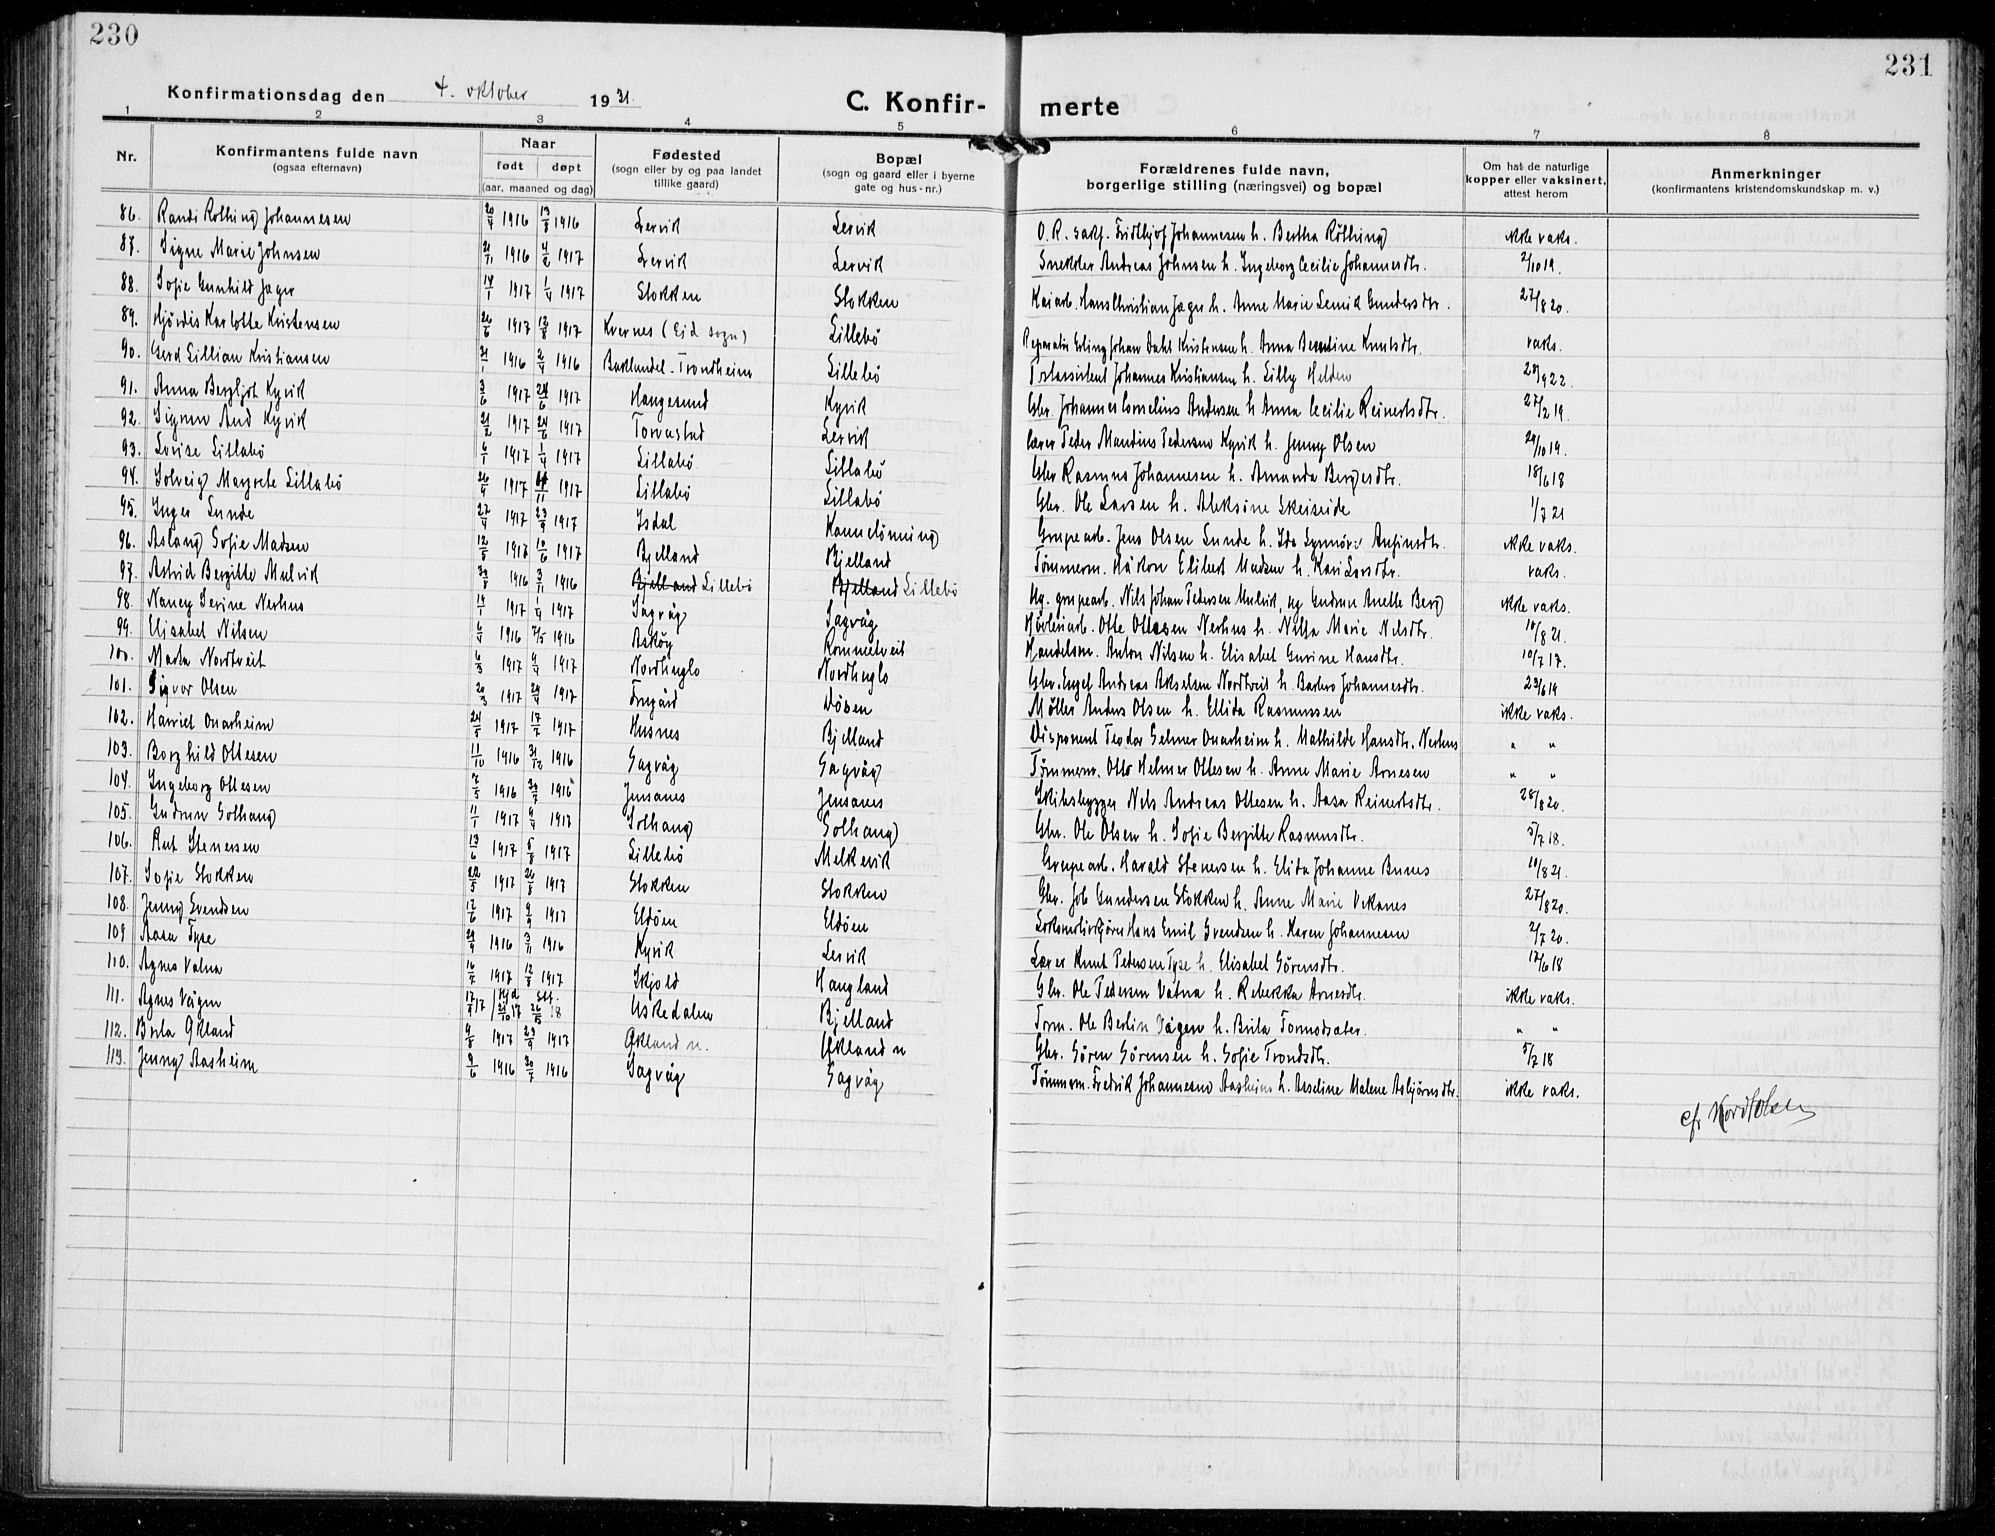 230
Konfirmationsdag den 4. oktober 1931.
C. Konfir-
merte
231
1 2 3 4 5 6 7 8
Nr.
Konfirmantens fulde navn
(ogsaa efternavn)
Naar
født døpt
(aar, maaned og dag)
Fødested
(sogn eller by og paa landet
tillike gaard)
Bopæl
(sogn og gaard eller i byerne
gate og hus-nr.)
Forældrenes fulde navn,
borgerlige stilling (næringsvei) og bopæl
Om hat de naturlige
kopper eller vaksinert,
attest herom
Anmerkninger
(konfirmantens kristendomskundskap m. v.)
86. Randi Röthing Johannesen 20/4 1916 13/8 1916 Lervik Lervik O.R. sakf. Fridthjof Johannesen h. Bertha Röthing ikke vaks.
87. Signe Marie Johnsen 21/11 1916 4/2 1917 Lervik Lervik Snekker Andreas Johnsen h. Ingeborg Cecilie Johannesdtr. 2/10 19.
88. Sofie Gunhild Jæger 14/1 1917 1/4 1917 Stokken Stokken Kaiarb. Hans Christian Jæger h. Anne Marie Lemik Gundersdtr. 27/8 20.
89. Hjördis Karlotte Kristensen 26/6 1917 12/8 1917 Kvernes (Eid sogn) Lillebö Reparatör Erling Johan Dahl Kristensen h. Anna Bendine Knutsdtr. vaks.
90. Gerd Lillian Kristiansen 21/1 1916 2/4 1916 Baklandet-Trondheim Lillebö Johannes Kristiansen h. Lilly Helden 28/9 22.
91. Anna Bergljot Kyvik 3/6 1917 24/6 1917 Haugesund Kyvik Gbr. Johannes Cornelius Andersen h. Anna Cecilie Reinertsdtr. 27/2 19.
92. Signe Aud Kyvik 21/2 1917 24/6 1917 Torvastad Lervik Lærer Peder Mandius Pedersen Kyvik h. Jenny Olsen 29/10 19.
93. Lovise Litlabö 6/1 1917 1/4 1917 Litlabö Litlabö Gbr. Rasmus Johannesen h. Amanda Bergesdtr. 18/6 18
94. Solveig Margrete Litlabö 26/9 1917 11/11 1917 Litlabö Litlabö Gbr. Ole Larsen h. Aleksine Skeiseide 1/7 21
95. Inger Lunde 27/4 1917 23/9 1917 Isdal Kanneløning Grupearb. Jens Olsen Lunde h. Ida Synnöve Anfinsdtr. ikke vaks.
96. Aslaug Sofie Madsen 12/5 1917 10/6 1917 Bjelland Bjelland Tömmerm. Håkon Elibert Madsen h. Kari Larsdtr. vaks.
97. Astrid Bergitte Mulvik 30/8 1916 3/11 1916 Bjelland Lillebö Bjelland Lillebö Ug. grupearb. Nils Johan Pedersen Mulvik, ug Gudrun Anette Berg ikke vaks.
98. Nancy Serine Nerhus 14/1 1917 1/4 1917 Sagvåg Sagvåg Hövleriarb. Otte Ottesen Nerhus h. Nilla Marie Nilsdtr. 10/8 21.
99. Elisabet Nilsen 6/4 1916 7/5 1916 Asköy Rommetveit Handelsm. Anton Nilsen h. Elisabet Gurine Hansdtr. 10/7 17.
100. Marta Nordtveit 6/3 1917 9/4 1917 Nordhuglo Nordhuglo Gbr. Engel Andreas Akselsen Nordtveit h. Barbro Johannesdtr. 23/6 19
101. Sigvor Olsen 20/3 1917 29/4 1917 Trrgård Dösen Möller Anders Olsen h. Ellida Rasmussen ikke vaks.
102. Harriet Onarheim 24/5 1917 17/7 1917 Husnes Bjelland Disponent Teodor Gelmer Onarheim h. Mathilde Hansdtr. Nerhus " "
103. Borghild Ottesen 11/10 1916 31/12 1916 Sagvåg Sagvåg Tömmerm. Otto Helmer Ottesen h. Anne Marie Arnesen " "
104. Ingeborg Ottesen 7/5 1916 30/7 1916 Jensanes Jensanes Skibsbygger Nels Andreas Ottesen h. Aasa Reinertsdtr. 28/8 20.
105. Gudrun Solhaug 11/1 1917 9/4 1917 Solhaug Solhaug Gbr. Ole Olsen h. Sofie Bergitte Rasmusdtr. 5/7 18.
106. Rut Stenersen 13/6 1917 5/8 1917 Lillebö Melkevik Grupearb. Harald Stenersen h. Elida Johanne Bunes 10/8 21.
107. Sofie Stokken 22/5 1917 26/8 1917 Stokken Stokken Gbr. Job Gundersen Stokken h. Anne Marie Vikanes 27/8 20.
108. Jenny Svendsen 12/6 1917 9/9 1917 Eldöen Eldöen Hans Emil Svendsen h. Karen Johannesen 2/7 20.
109 Aasa Tyse 29/9 1916 3/11 1916 Kyvik Lervik Lærer Knut Pedersen Tyse h. Elisabet Sörensdtr. 17/6 18
110. Agnes Vatna 16/7 1917 12/8 1917 Skjold Haugland Gbr. Ole Pedersen Vatna h. Rebekka Arnesdtr. ikke vaks.
111. Agnes Vågen 17/9 17 Hjd. 21/10 17 stf. 26/5 18 Uskedalen Bjelland Trm. Ole Berlin Vågen h. Brita Tormodsæter. " "
112. Brita Økland 9/8 1917 23/9 1917 Økland n. Økland n Gbr. Sören Sörensen h. Sofie Trondsdtr. 5/2 18
113. Jenny Aasheim 9/6 1916 30/7 1916 Sagvåg Sagvåg Tömmerm. Fredrik Johannesen Aasheim h. Asseline Malene Asbjörnsdtr. ikke vaks.